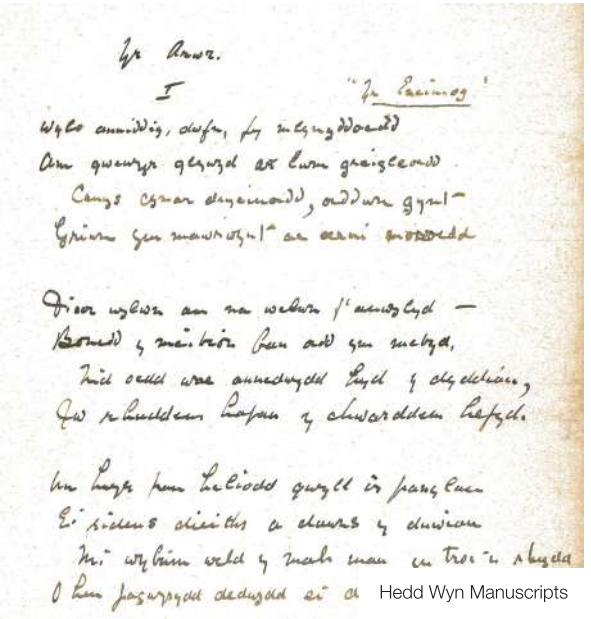 Yr Arwr.
I
"Yr Eneiniog"
Wylo anniddig, dwfn, fy mlynyddoedd
Am gwewyr glywyd ar lwm greigleoedd
Canys cymar drycinoedd, oeddwn gynt
Criwn ym mawrwynt ac oerni moroedd
Dioer wylwn am na welwn f'anwylyd —
Bonedd y meibion ban oedd yn mebyd,
Nid oedd wae annedwydd hyd y dyddiau,
I'w rhuddem hafan y chwarddem hefyd.
Un hwyr pan heliodd gwyll i'r panylau
Ei dieithr a dawns y duwiau
Mi wybum weld y mab mau yn troi'n rhydd
O hen fagwyrydd dedwydd ei d
Hedd Wyn Manuscripts